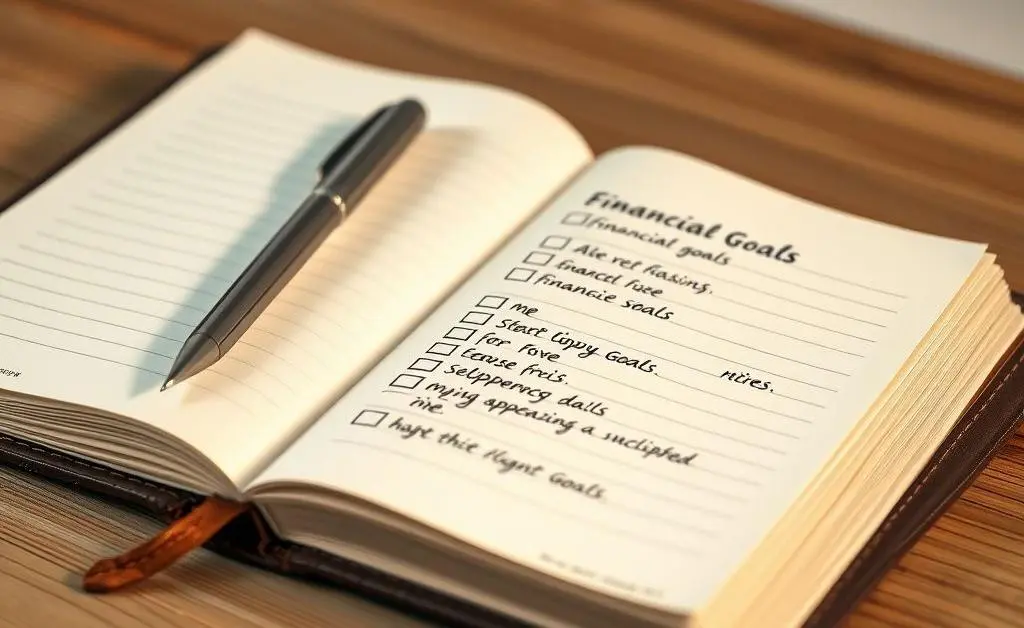 Financial Goals
Financial goals
Ale ret fiasing.
financt fuze
Financie soals
me
Start lippy Goals. nities.
For Fove
Ecruse freis.
selppereng dails
myjng appenzing a suclipfed
ine
hapt thie Hugnt Goals